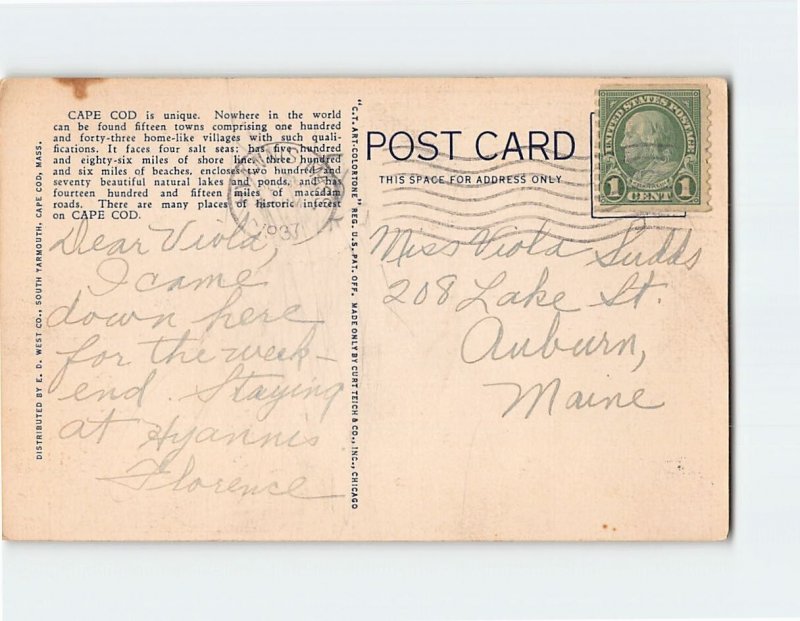 CAPE COD is unique. Nowhere in the world
can be found fifteen towns comprising one hundred
and forty-three home-like villages with such quali-
fications. It faces four salt seas; has five hundred
and eighty-six miles of shore line, three hundred
and six miles of beaches, encloses two hundred and
seventy beautiful natural lakes and ponds, and has
fourteen hundred and fifteen miles of macadam
roads. There are many places of historic interest
on CAPE COD.
DISTRIBUTED BY E. D. WEST CO., SOUTH YARMOUTH, CAPE COD, MASS.
Dear Viola,
I came
down here
for the week-
end. Staying
at Hyannis
Florence
"C.T. ART-COLORTONE" REG. U.S. PAT. OFF. MADE ONLY BY CURT TEICH & CO., INC., CHICAGO
1937
POST CARD
THIS SPACE FOR ADDRESS ONLY
UNITED STATES POSTAGE
1 CENT 1
Miss Viola Sudds
208 Lake St.
Auburn,
Maine